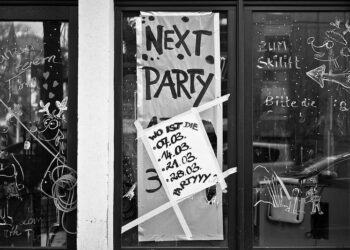 NEXT
PARTY
3
WO IST DIE
07.03.
14.03.
21.03.
28.03.
PARTYYY
zum
Skilift
Bitte die